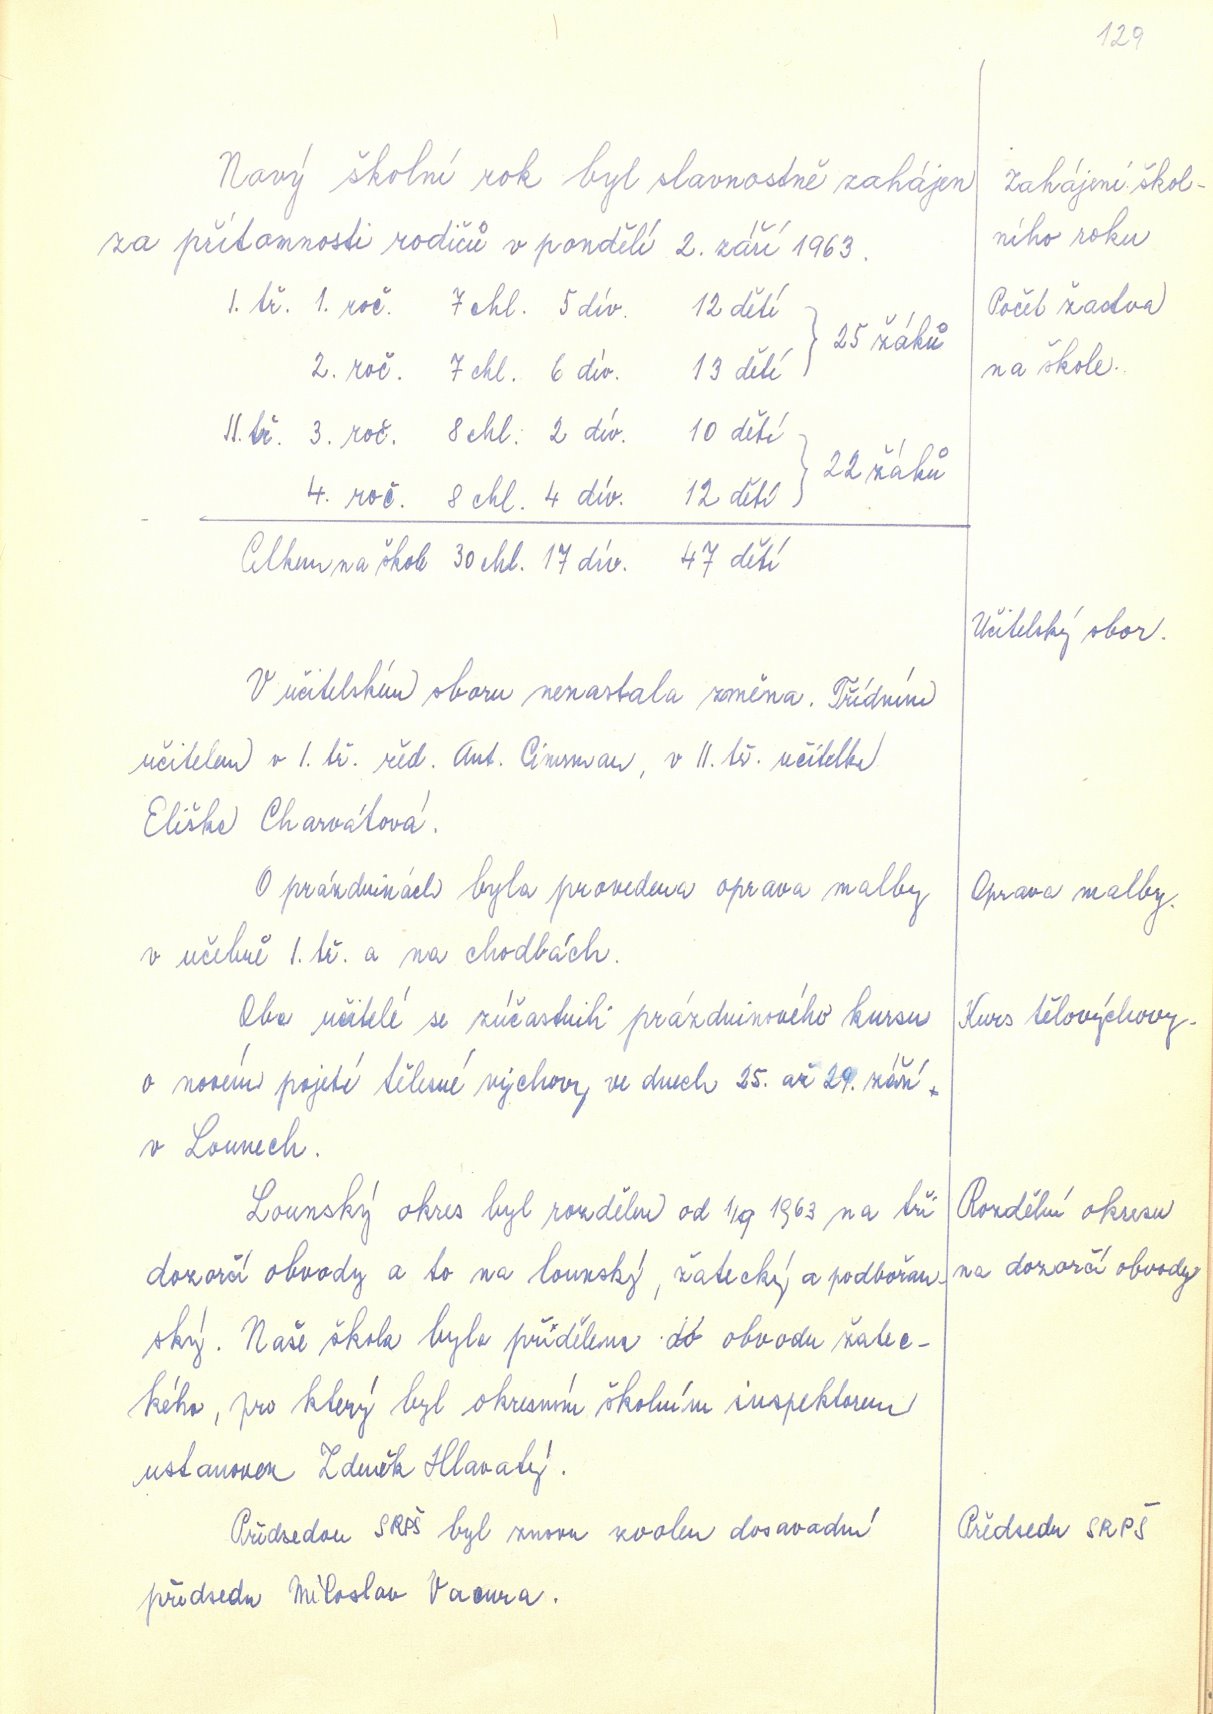 129
Nový školní rok byl slavnostně zahájen
za přítomnosti rodičů v pondělí 2. září 1963.
Zahájení škol-
ního roku
I. tř. 1. roč. 7 chl. 5 dív. 12 dětí
2. roč. 7 chl. 6 dív. 13 dětí
} 25 žáků
Počet žactva
na škole.
II. tř. 3. roč. 8 chl. 2 dív. 10 dětí
4. roč. 8 chl. 4 dív. 12 dětí
} 22 žáků
Celkem na škole 30 chl. 17 dív. 47 dětí
Učitelský sbor.
V učitelském sboru nenastala změna. Třídním
učitelem v I. tř. řed. Ant. v II. tř. učitelka
Eliška Charvátová.
O prázdninách byla provedena oprava malby
v učebně I. tř. a na chodbách.
Oprava malby.
Oba učitelé se zúčastnili prázdninového kursu
o novém pojetí tělesné výchovy ve dnech 25. až 29. září
v Lounech.
Kurs tělovýchovy.
Lounský okres byl rozdělen od 1/9 1963 na tři
dozorčí obvody a to na lounský, žatecký a podbořan-
ský. Naše škola byla přidělena do obvodu žatec-
kého, pro který byl okresním školním inspektorem
ustanoven Zdeněk Hlavatý.
Rozdělení okresu
na dozorčí obvody
Předsedou SRPŠ byl znovu zvolen dosavadní
předseda Miloslav Vacura.
Předseda SRPŠ